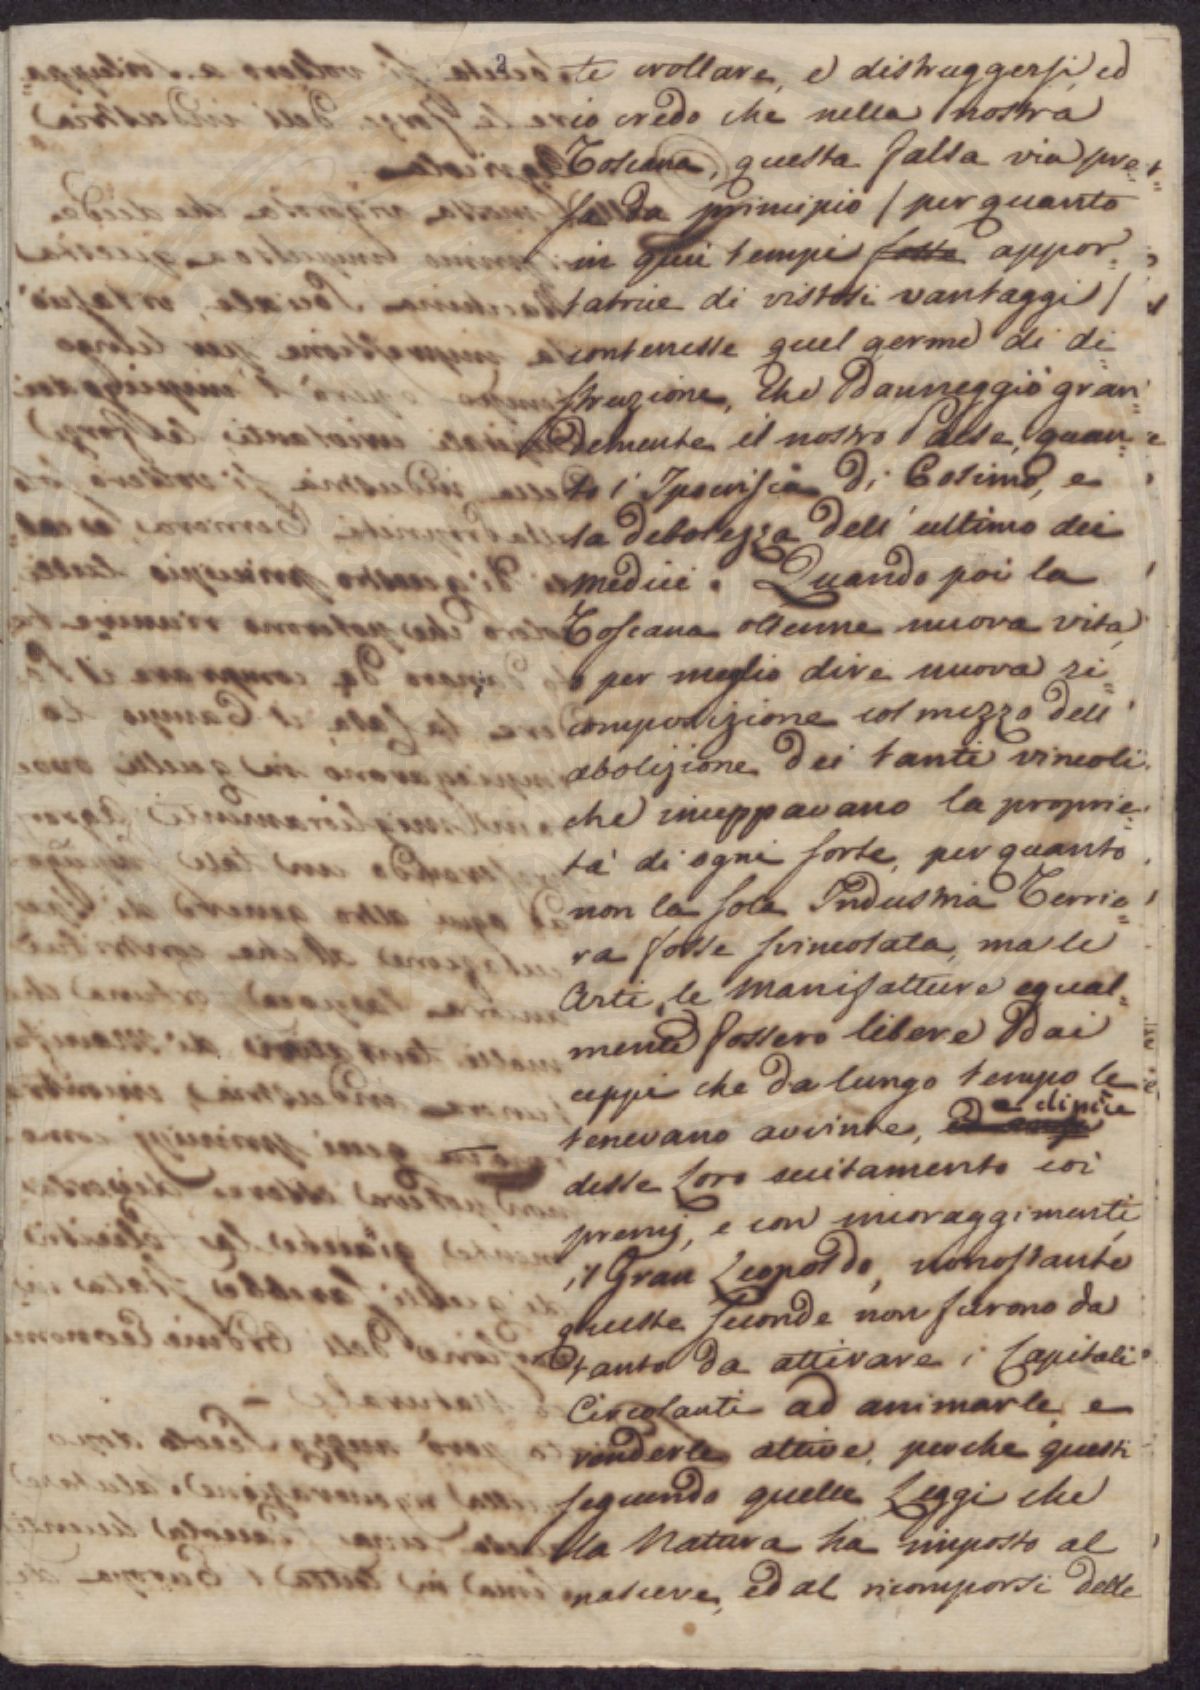 2
te crollare, e distruggersi, ed
io credo che nella nostra
Toscana, questa falsa via pre=
sa da principio / per quanto
in quei tempi fosse appor=
tatrice di vistosi vantaggi /
contenesse quel germe di di=
struzione, che danneggiò gran=
demente il nostro Paese, quan=
to l'Ipocrisia di Cosimo, e
la debolezza dell'ultimo dei
Medici. Quando poi la
Toscana ottenne nuova vita,
o per meglio dire nuova ri=
composizione col mezzo dell'
abolizione dei tanti vincoli
che inceppavano la proprie=
tà di ogni sorte, per quanto
non la sola Industria Terrie=
ra fosse svincolata, ma le
Arti, le Manifatture egual=
mente fossero libere dai
ceppi che da lungo tempo le
tenevano avvinte, e dipiù
desse loro eccitamento coi
premj, e con incoraggimenti,
il Gran Leopoldo, nonostante
queste seconde non furono da
tanto da attivare i Capitali
Circolanti ad animarle, e
renderle attive, perche questi
seguendo quelle Leggi che
la Natura ha imposto al
nascere, ed al ricomporsi delle